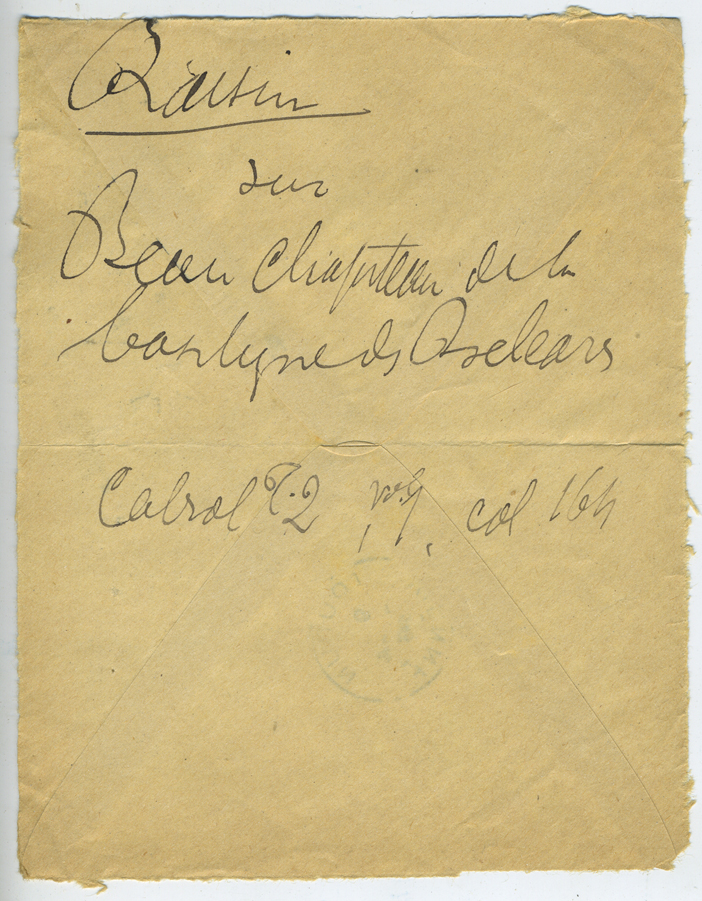 Raisin
sur
Beau chapiteau de la
basilique des Baléares
Cabrol T. 2 vol 1, col 164